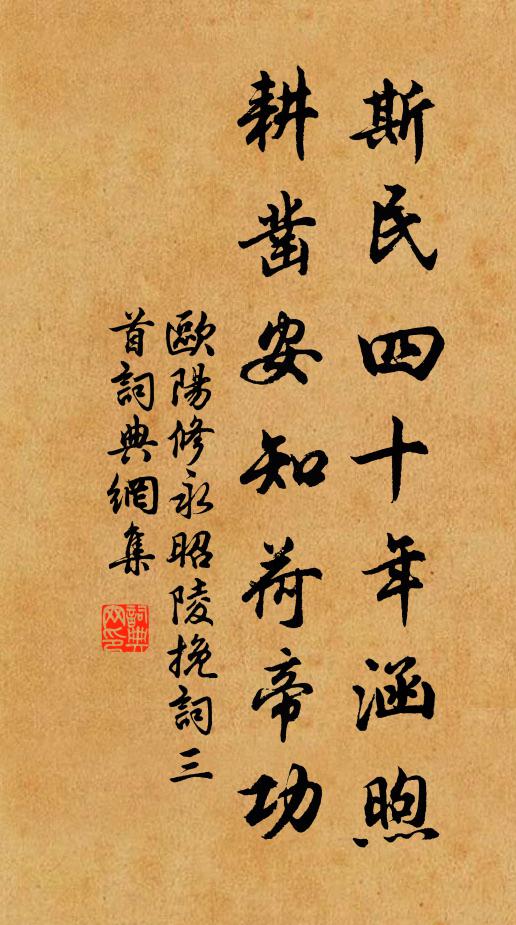 斯民四十年涵煦
耕凿安知荷帝功
歐陽修永昭陵挽詞三
首詞典網集
詞典网印